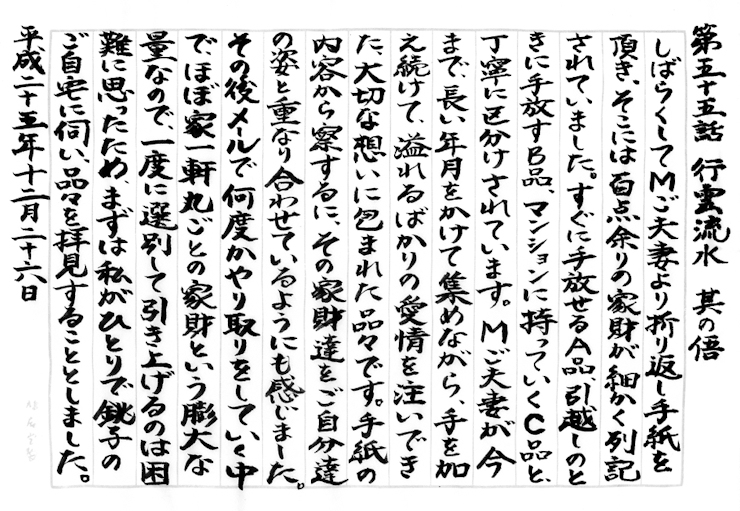 第五十五話　行雲流水　其の伍
しばらくしてMご夫妻より折り返し手紙を
頂き、そこには百点余りの家財が細かく列記
されていました。すぐに手放せるA品、引越しのと
きに手放すB品、マンションに持っていくC品と、
丁寧に区分けされています。Mご夫妻が今
まで、長い年月をかけて集めながら、手を加
え続けて、溢れるばかりの愛情を注いでき
た、大切な想いに包まれた品々です。手紙の
内容から察するに、その家財達をご自分達
の姿と重なり合わせているようにも感じました。
その後メールで何度かやり取りをしていく中
で、ほぼ家一軒丸ごとの家財という膨大な
量なので、一度に選別して引き上げるのは困
難に思ったため、まずは私がひとりで銚子の
ご自宅に伺い、品々を拝見することとしました。
平成二十五年十二月二十六日